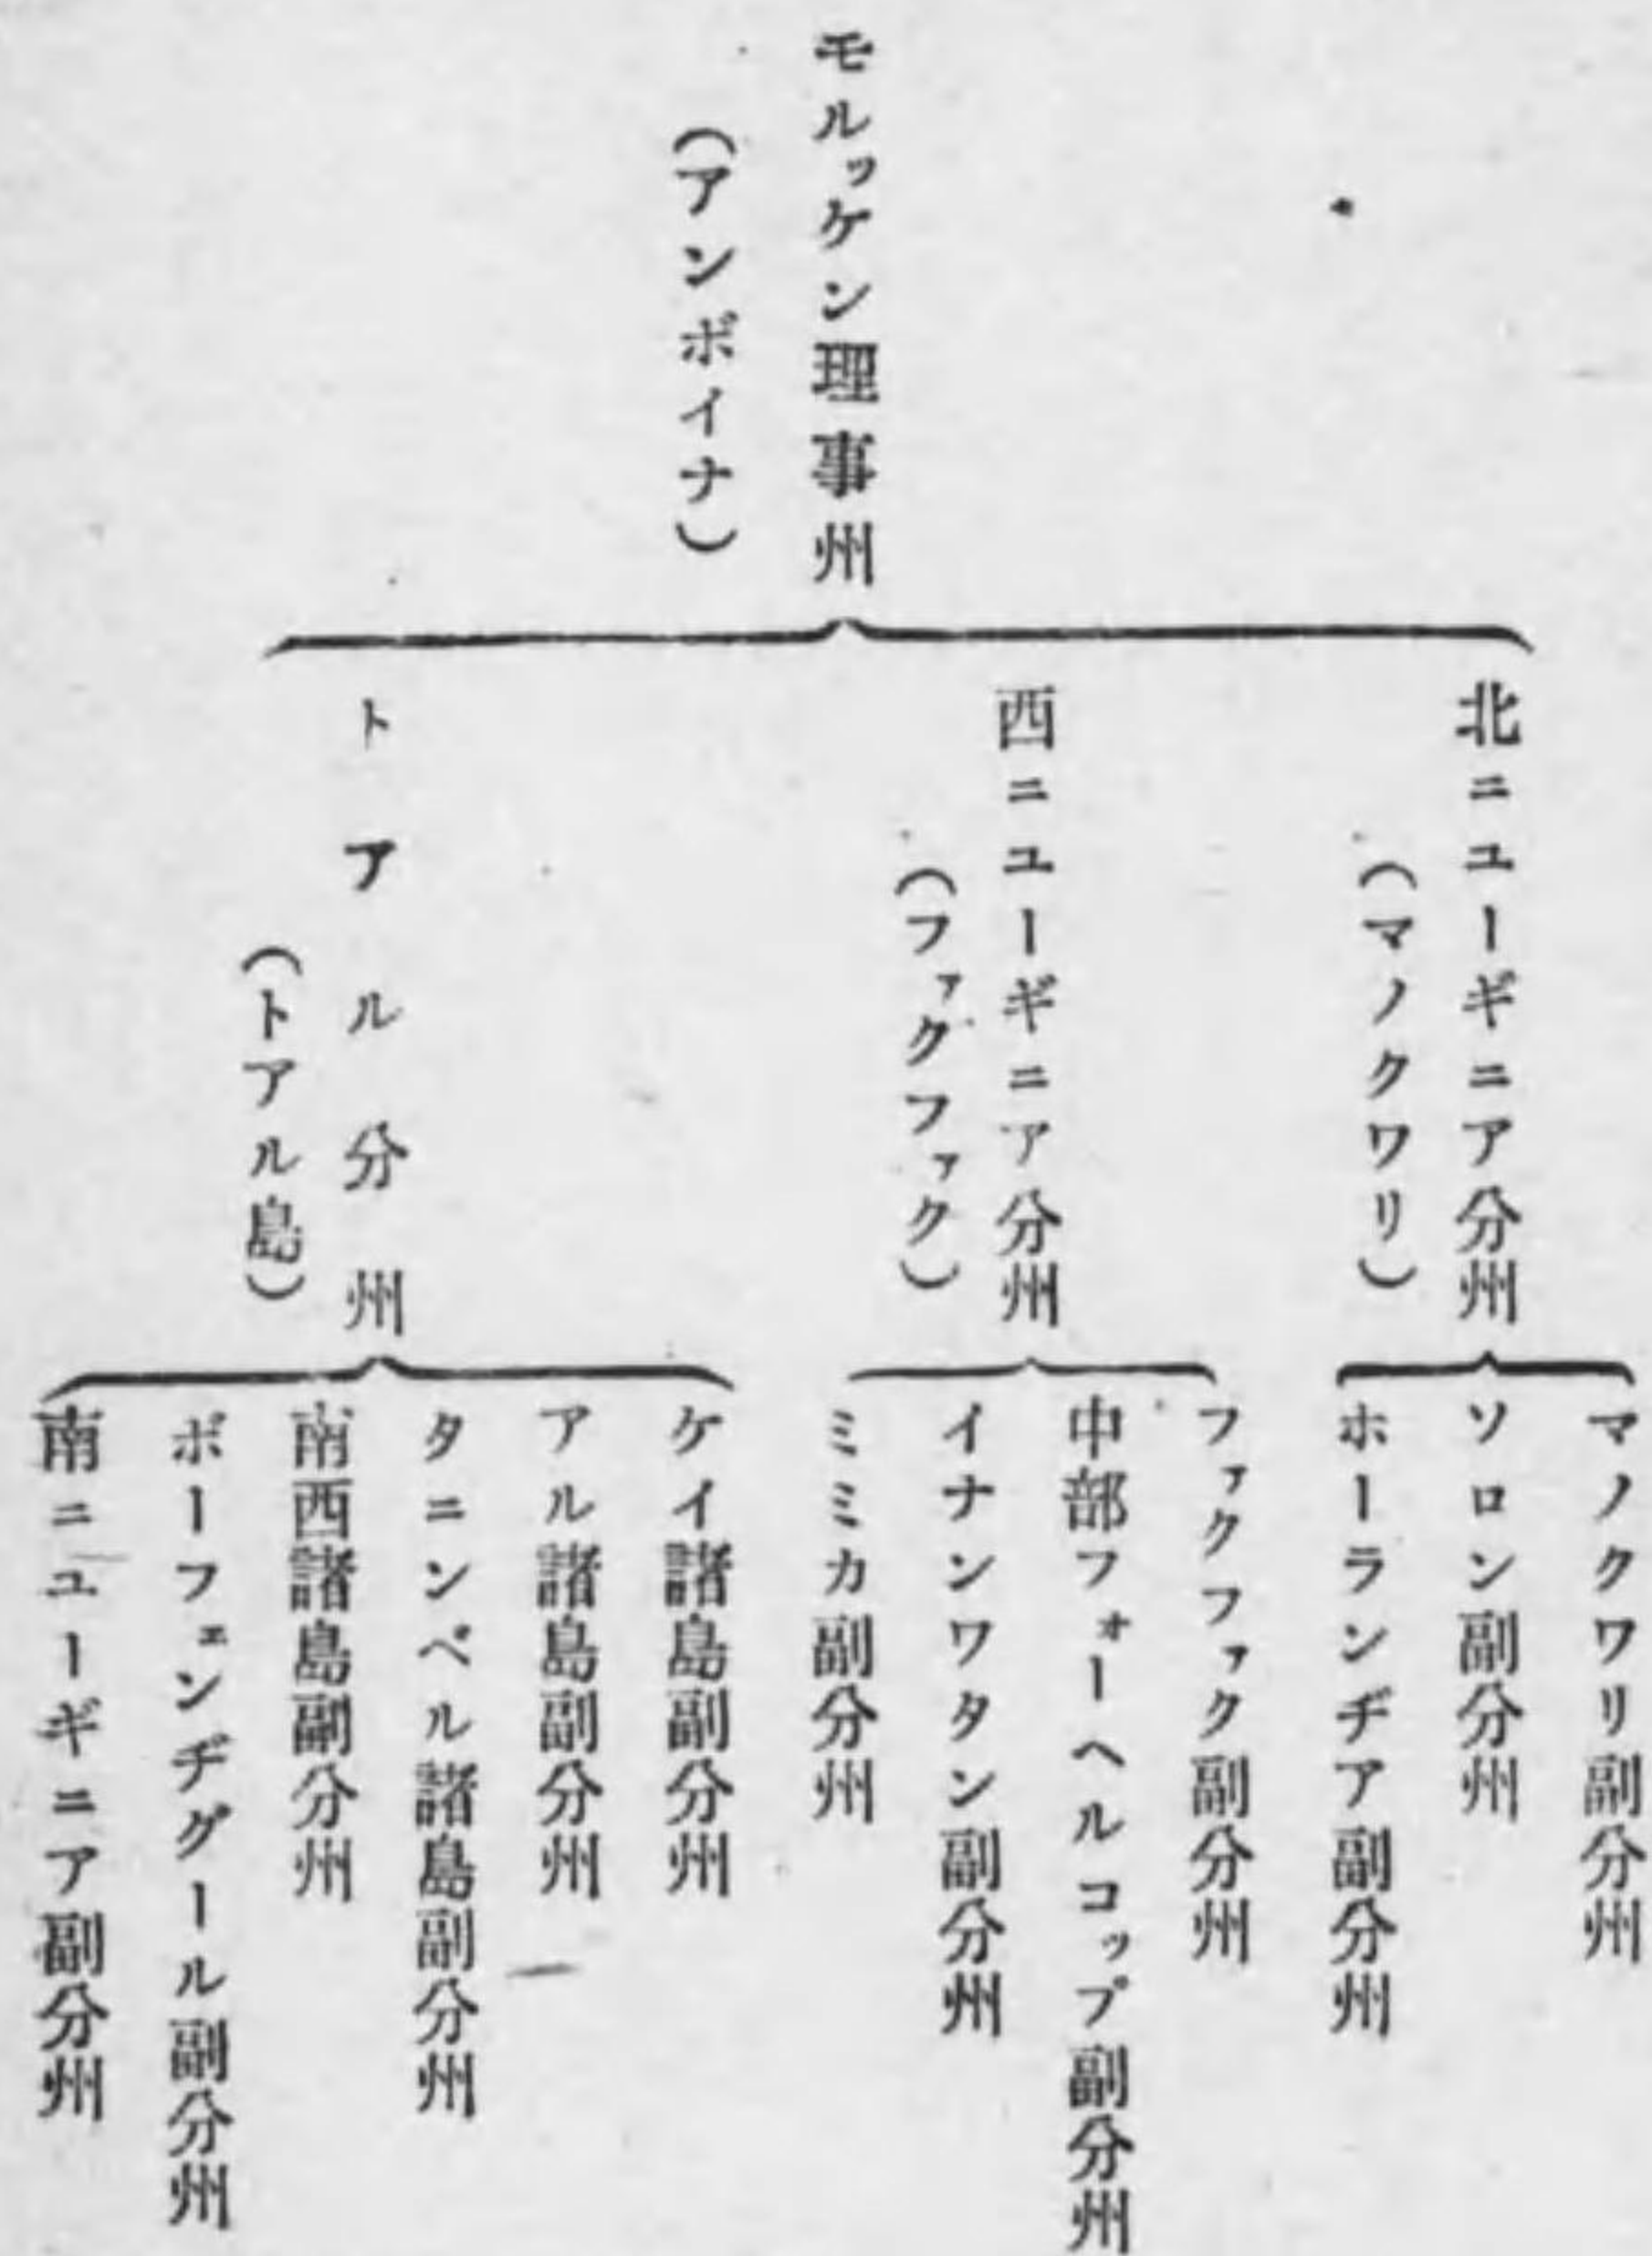 モルッケン理事州
（アンボイナ）
北ニユーギニア分州
（マノクワリ）
マノクワリ副分州
ソロン副分州
ホーランヂア副分州
西ニユーギニア分州
（ファクファク）
ファクファク副分州
中部フォーヘルコップ副分州
イナンワタン副分州
ミミカ副分州
トアル分州
（トアル島）
ケイ諸島副分州
アル諸島副分州
タニンペル諸島副分州
南西諸島副分州
ボーフェンヂグール副分州
南ニユーギニア副分州